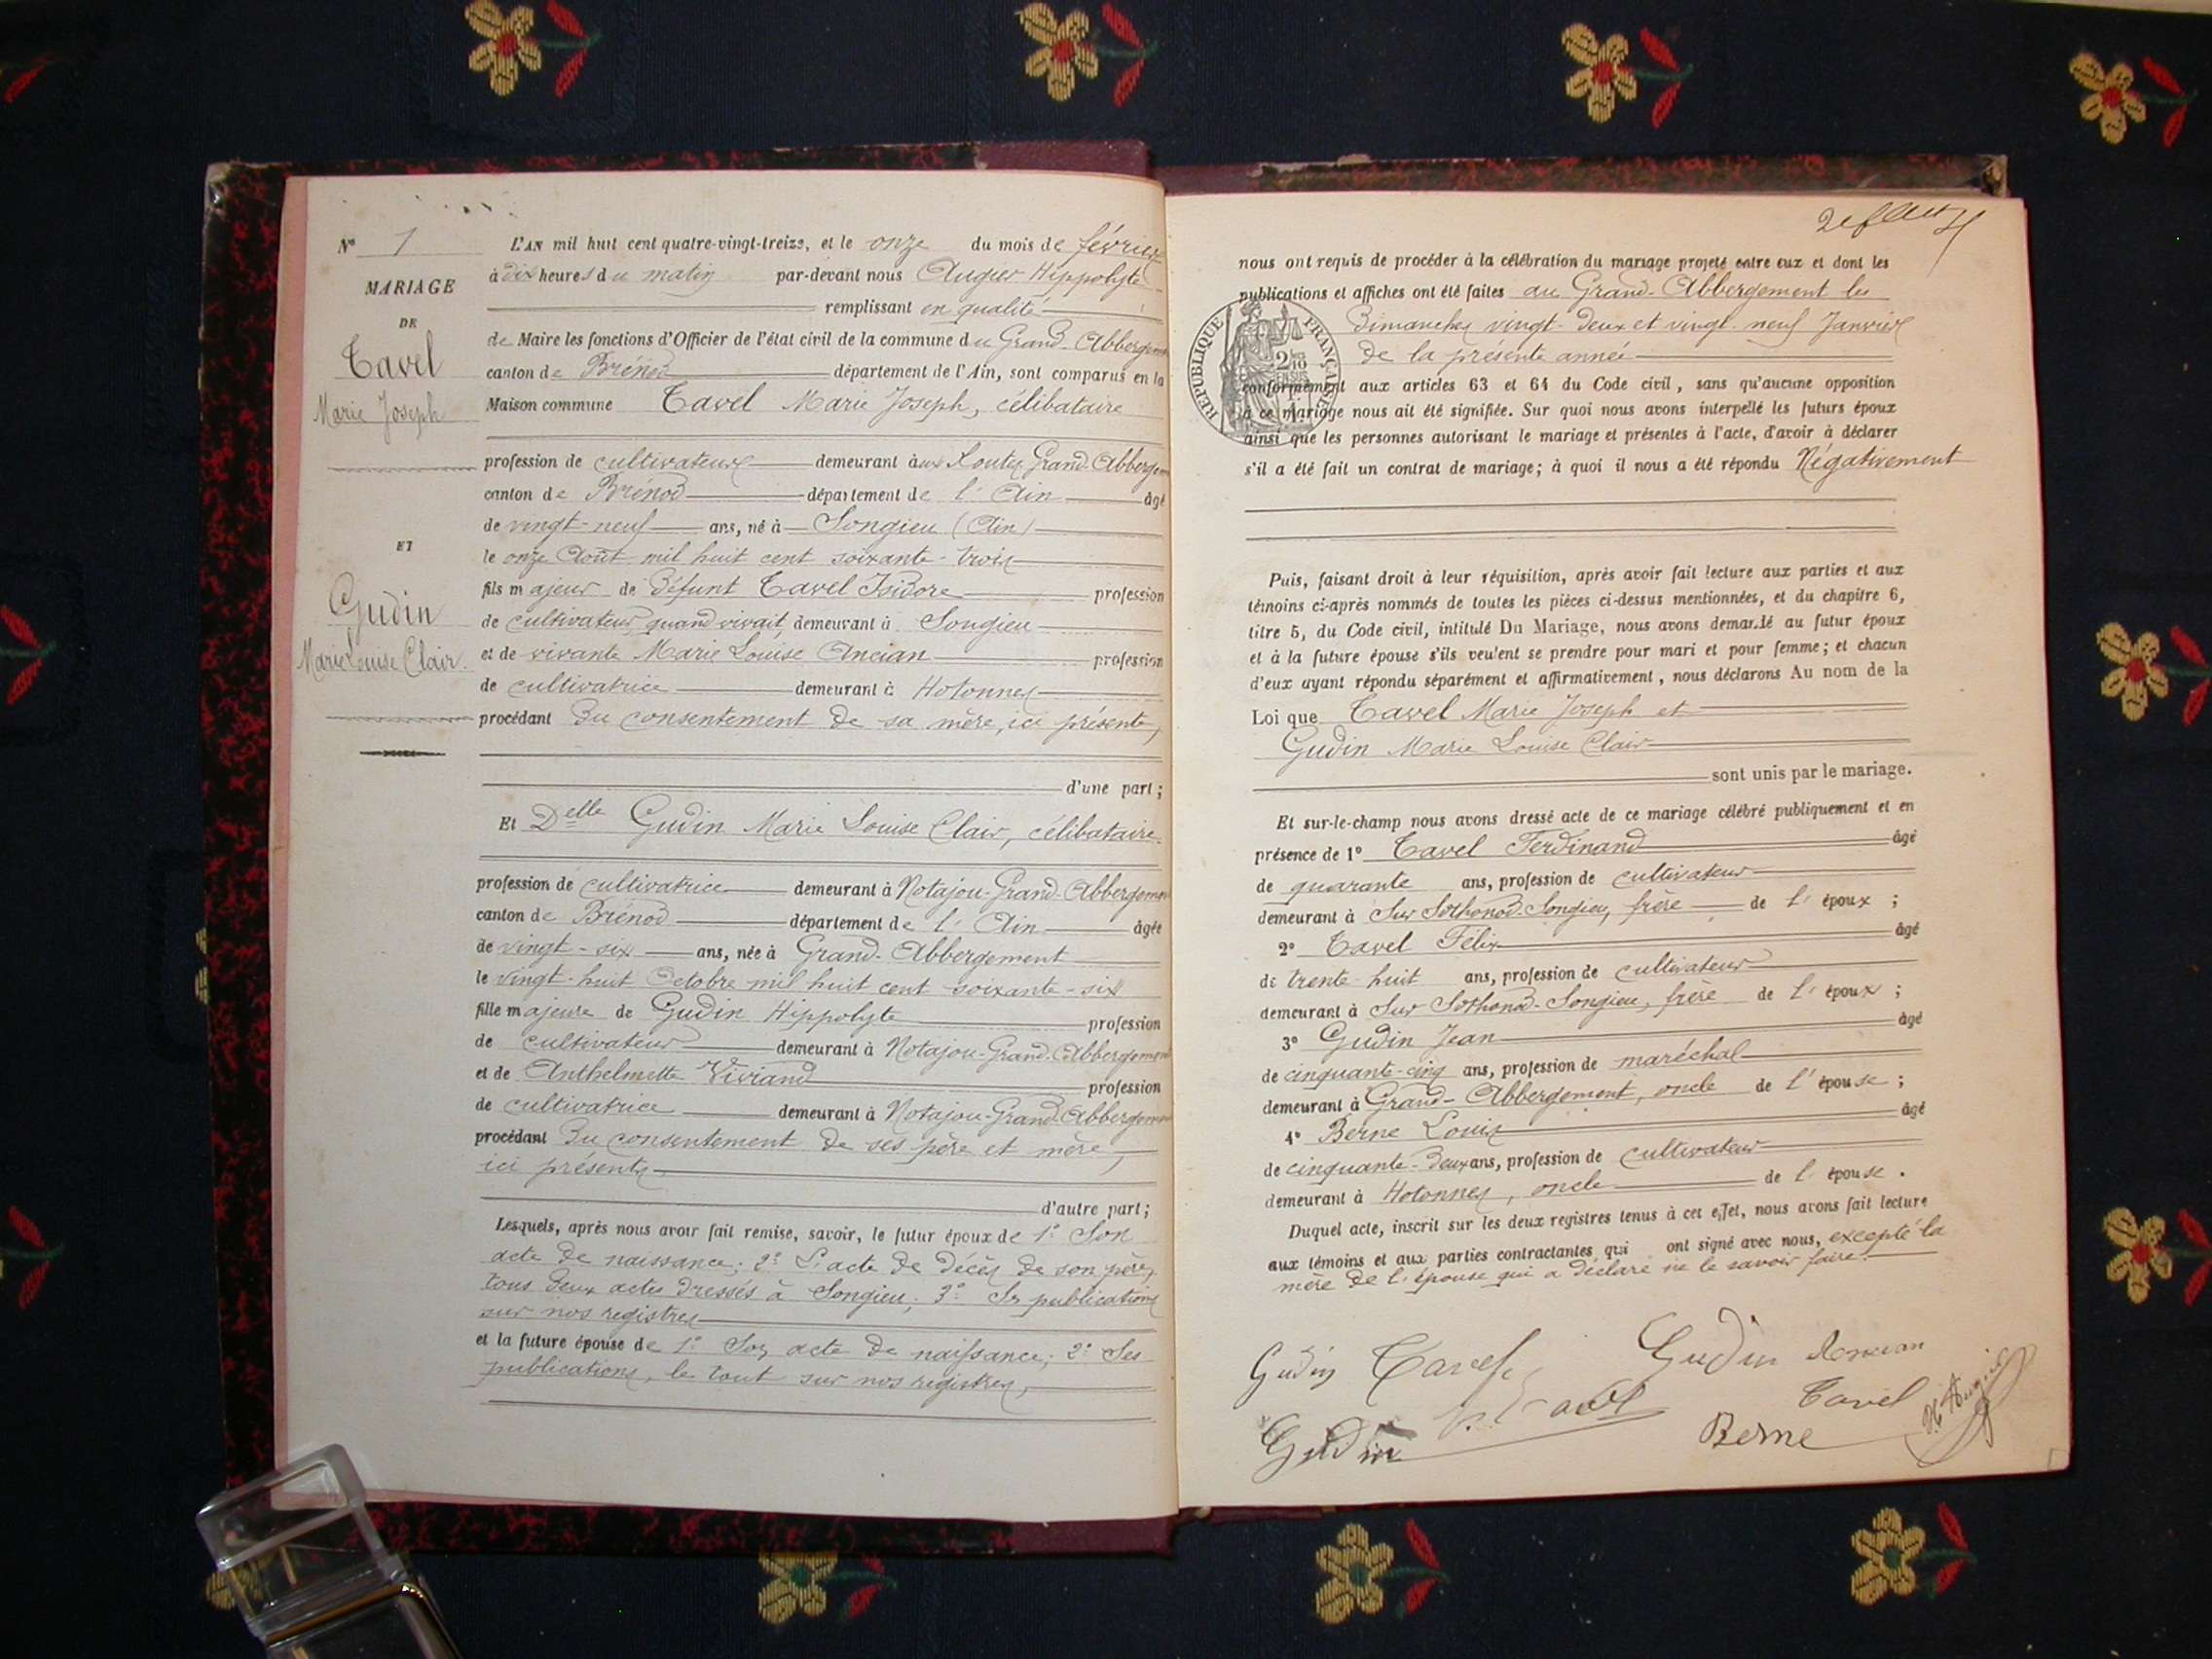 N° 1
MARIAGE
DE
Tavel
Marie Joseph
ET
Gudin
Marie Louise Clair.
L'AN mil huit cent quatre-vingt-treize, et le onze du mois de février
à dix heures du matin par-devant nous Augier Hippolyte
remplissant en qualité
de Maire les fonctions d'Officier de l'état civil de la commune du Grand-Abbergement
canton de Brénod département de l'Ain, sont comparus en la
Maison commune Tavel Marie Joseph, célibataire
profession de cultivateur demeurant aux Routes Grand-Abbergem
canton de Brénod département de l'Ain âgé
de vingt-neuf ans, né à Songieu (Ain)
le onze Août mil huit cent soixante-trois
fils majeur de défunt Tavel Isidore profession
de cultivateur, quand vivait, demeurant à Songieu
et de vivante Marie Louise Ancian profession
de cultivatrice demeurant à Hotonnes
procédant du consentement de sa mère, ici présente,
d'une part ;
Et Delle Gudin Marie Louise Clair, célibataire.
profession de cultivatrice demeurant à Notajou-Grand-Abbergement
canton de Brénod département de l'Ain âgée
de vingt-six ans, née à Grand-Abbergement
le vingt-huit Octobre mil huit cent soixante-six
fille majeure de Gudin Hippolyte profession
de cultivateur demeurant à Notajou-Grand-Abbergement
et de Anthelmette Viviand profession
de cultivatrice demeurant à Notajou-Grand-Abbergement
procédant du consentement de ses père et mère,
ici présents
d'autre part ;
Lesquels, après nous avoir fait remise, savoir, le futur époux de 1° Son
acte de naissance ; 2° L'acte de décès de son père,
tous deux actes dressés à Songieu ; 3° Ses publications
sur nos registres
et la future épouse de 1° Son acte de naissance ; 2° Ses
publications, le tout sur nos registres,
nous ont requis de procéder à la célébration du mariage projeté entre eux et dont les
publications et affiches ont été faites au Grand-Abbergement les
Dimanches vingt-deux et vingt-neuf Janvier
de la présente année
RÉPUBLIQUE FRANÇAISE
2/10 EN SUS
conformément aux articles 63 et 64 du Code civil, sans qu'aucune opposition
à ce mariage nous ait été signifiée. Sur quoi nous avons interpellé les futurs époux
ainsi que les personnes autorisant le mariage et présentes à l'acte, d'avoir à déclarer
s'il a été fait un contrat de mariage ; à quoi il nous a été répondu Négativement
Puis, faisant droit à leur réquisition, après avoir fait lecture aux parties et aux
témoins ci-après nommés de toutes les pièces ci-dessus mentionnées, et du chapitre 6,
titre 5, du Code civil, intitulé Du Mariage, nous avons demandé au futur époux
et à la future épouse s'ils veulent se prendre pour mari et pour femme ; et chacun
d'eux ayant répondu séparément et affirmativement, nous déclarons Au nom de la
Loi que Tavel Marie Joseph et
Gudin Marie Louise Clair
sont unis par le mariage.
Et sur-le-champ nous avons dressé acte de ce mariage célébré publiquement et en
présence de 1° Tavel Ferdinand âgé
de quarante ans, profession de cultivateur
demeurant à Sur Sothonod-Songieu, frère de l'époux ;
2° Tavel Félix âgé
de trente-huit ans, profession de cultivateur
demeurant à Sur Sothonod-Songieu, frère de l'époux ;
3° Gudin Jean âgé
de cinquante-cinq ans, profession de maréchal
demeurant à Grand-Abbergement, oncle de l'épouse ;
4° Berne Louis âgé
de cinquante-deux ans, profession de cultivateur
demeurant à Hotonnes, oncle de l'épouse.
Duquel acte, inscrit sur les deux registres tenus à cet effet, nous avons fait lecture
aux témoins et aux parties contractantes qui ont signé avec nous, excepté la
mère de l'épouse qui a déclaré ne le savoir faire.
Gudin Tavel Gudin Ancian
Tavel Tavel
Gudin Berne H. Augier